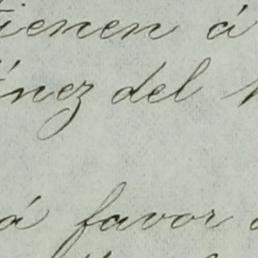 tienen á
ínez del
á favor